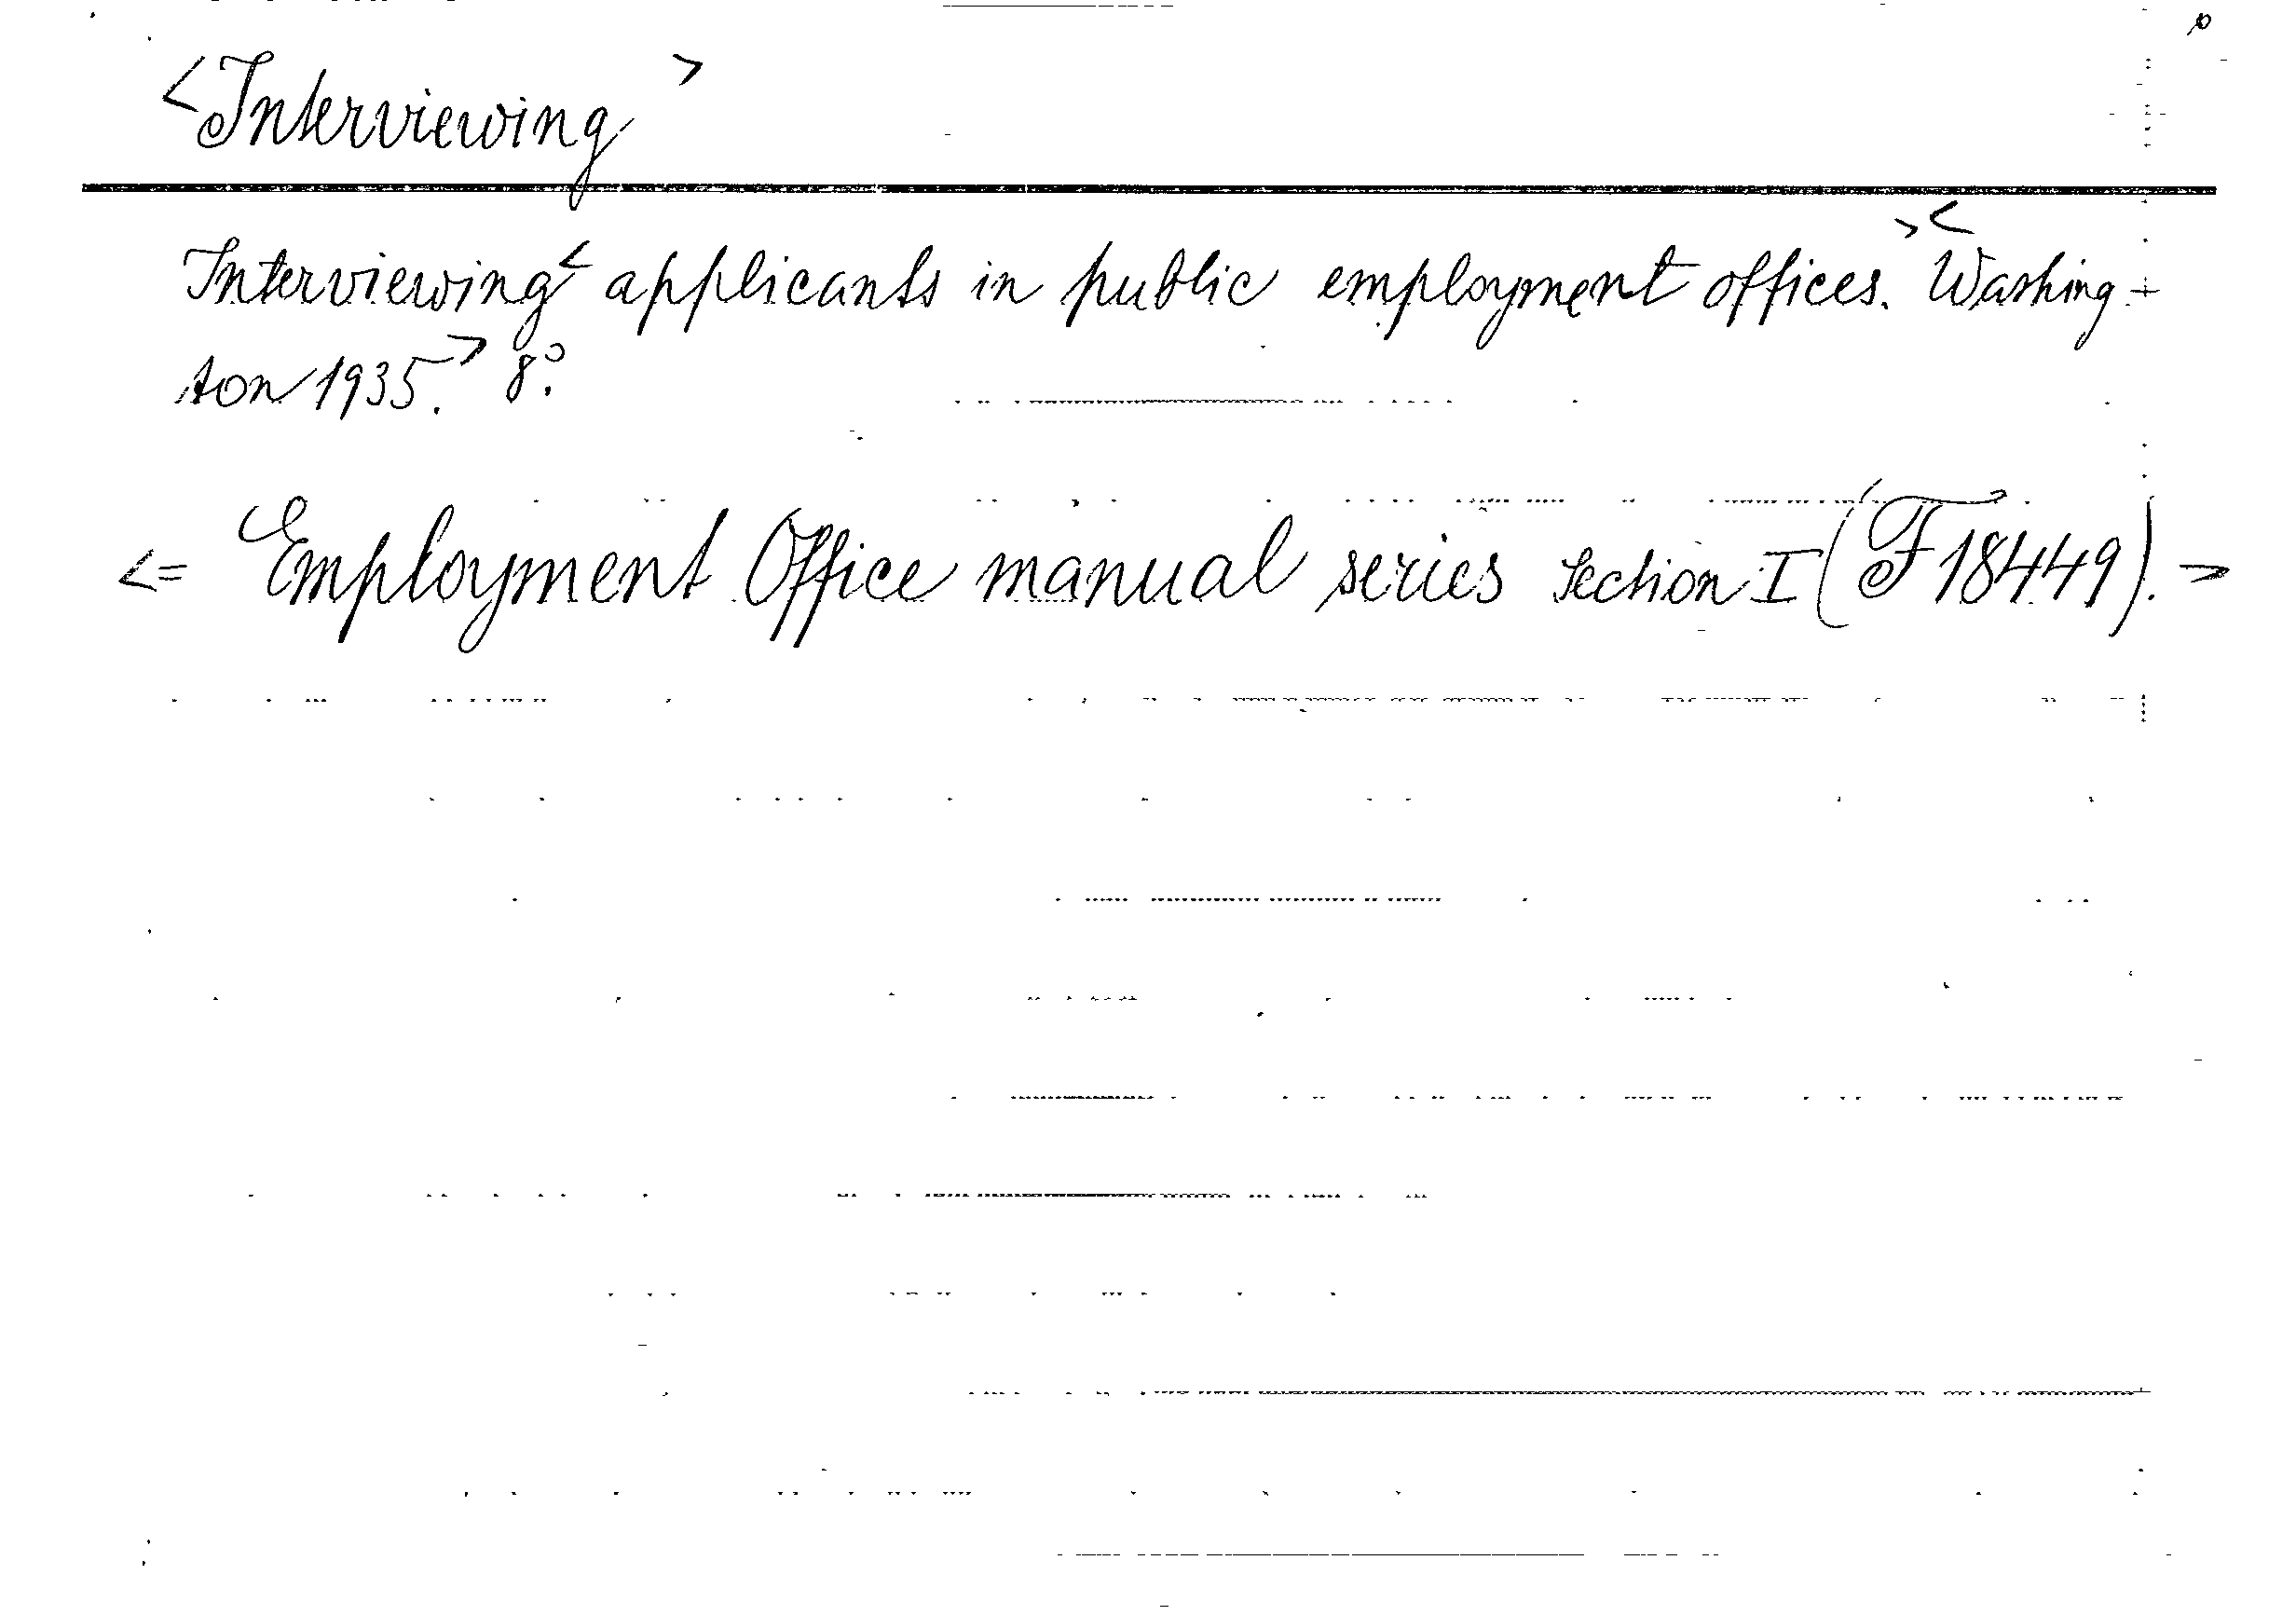 <Interviewing>
Interviewing< applicants in public employment offices.>< Washing-
ton 1935.> 8°.
<= Employment Office manual series Section I (F 18449).>